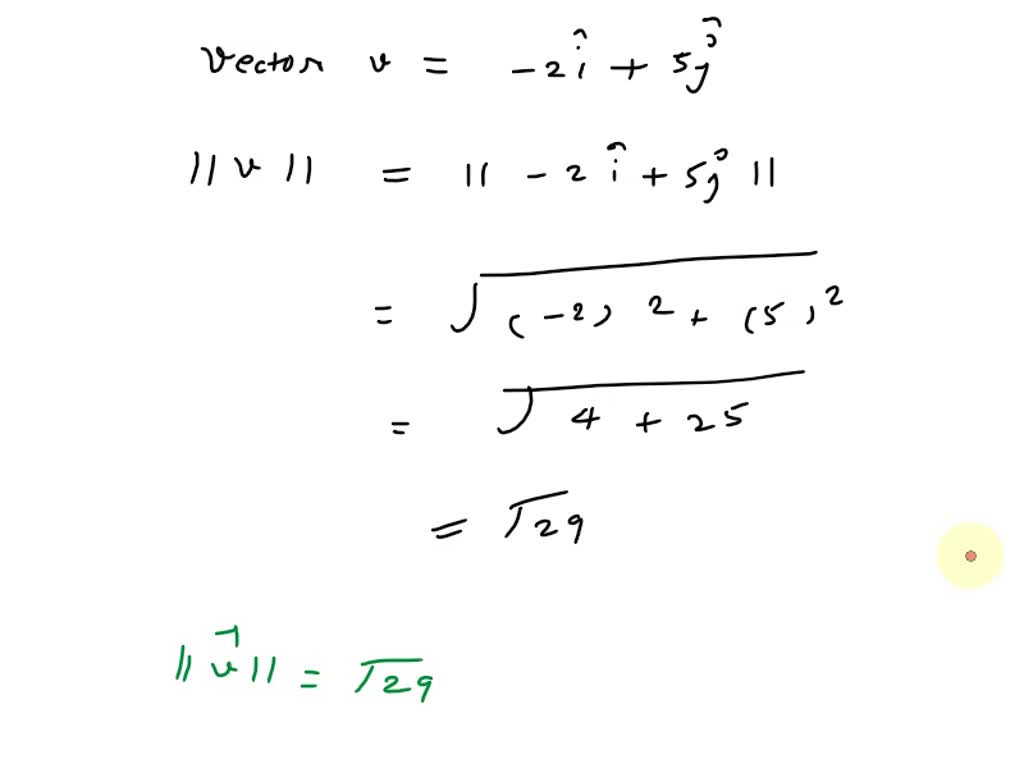 vector v = -2î + 5ĵ
||v|| = || -2î + 5ĵ ||
= √((-2)² + (5)²)
= √(4 + 25)
= √29
||v⃗|| = √29